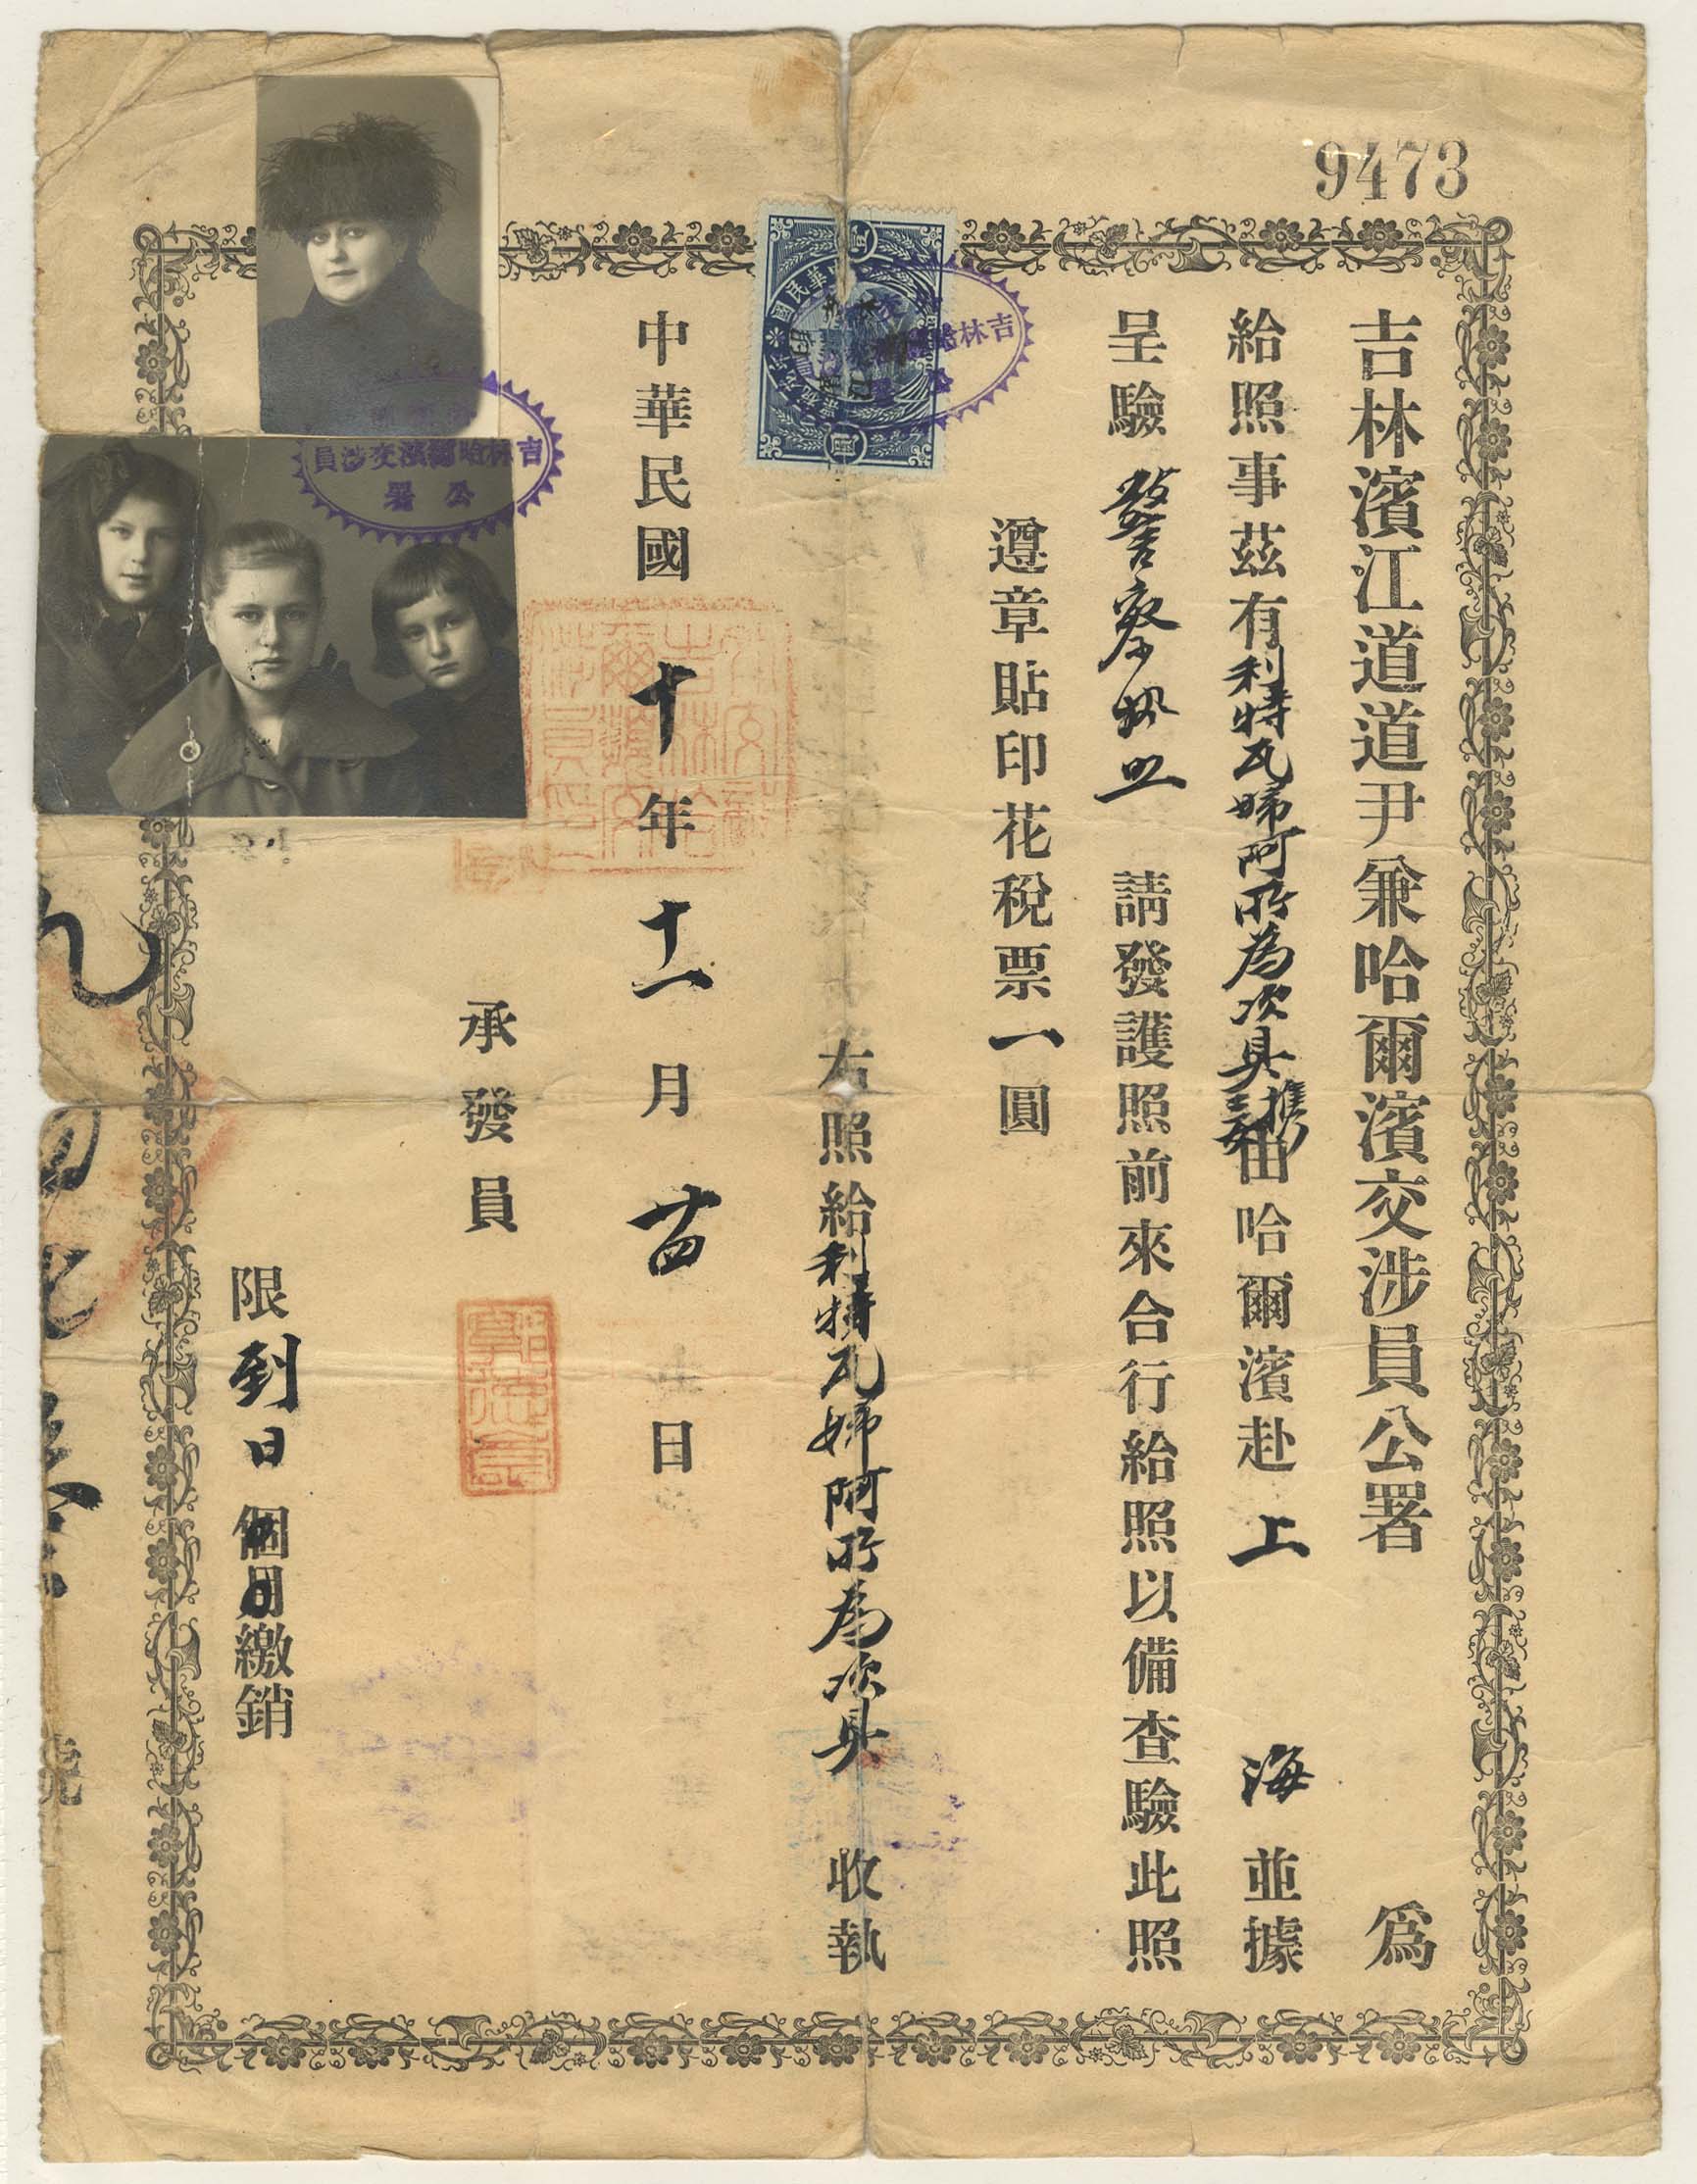 9473
吉林濱江道道尹兼哈爾濱交涉員公署 爲
給照事茲有利特瓦婦阿所為次具携三女由哈爾濱赴上海並據
呈驗警察執照請發護照前來合行給照以備查驗此照
遵章貼印花稅票一圓
右照給利特瓦婦阿所為次具 收執
中華民國十年十一月廿四日
承發員
限到日個月繳銷
吉林哈爾濱交涉員
公署
號